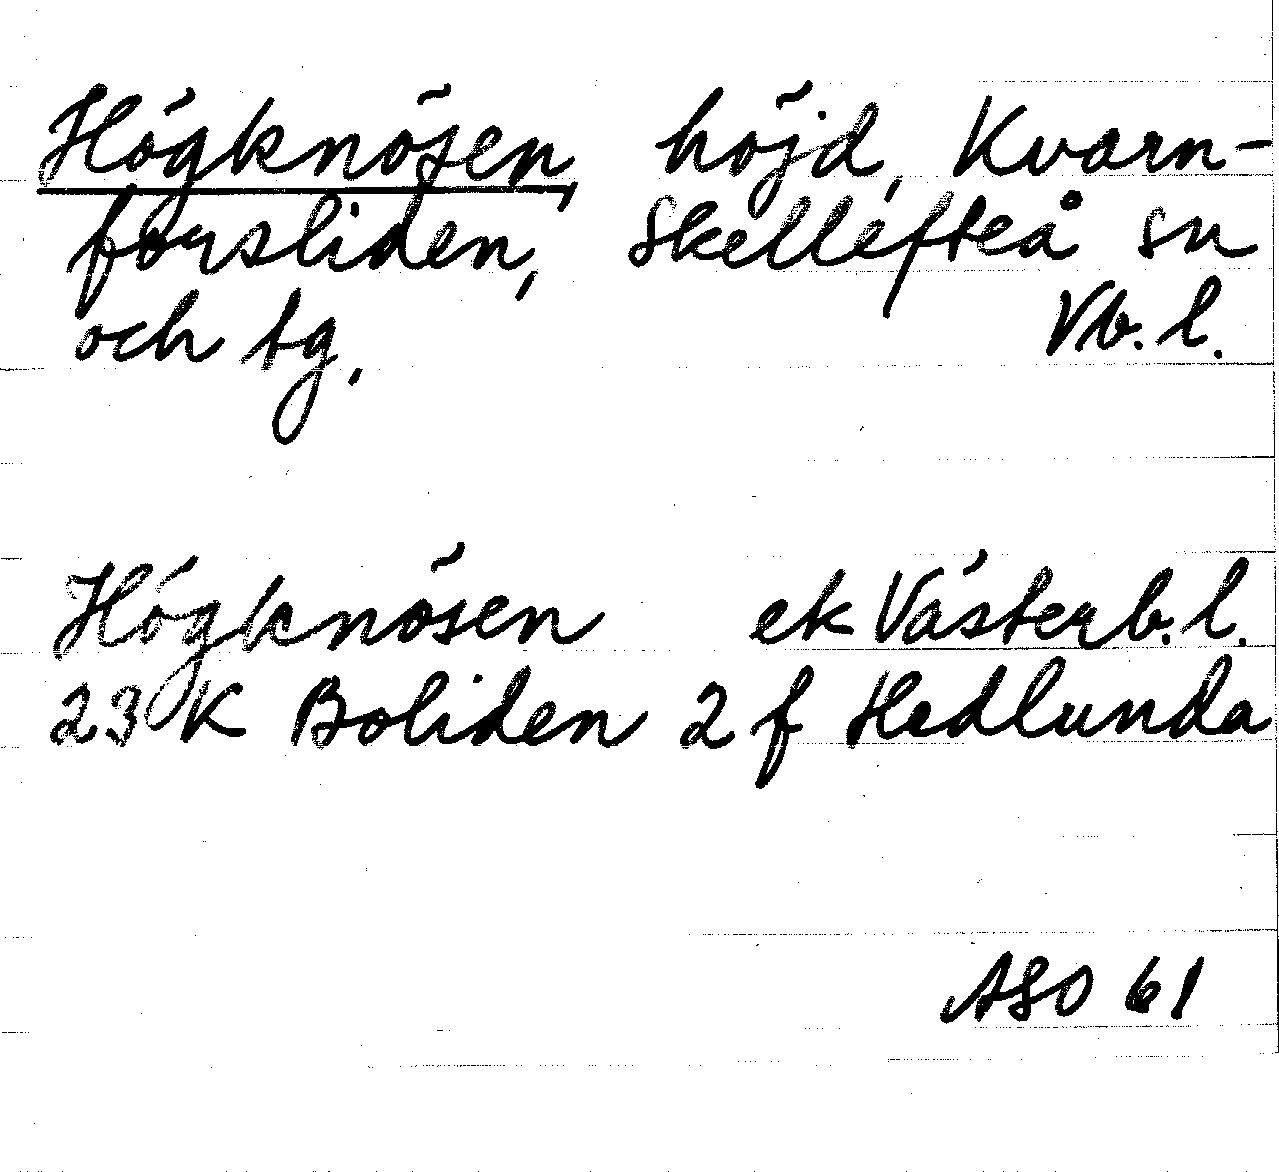 Högknösen, höjd, Kvarn-
forsliden, Skellefteå sn
och tg. Vb. l.
Högknösen ek Västerb. l.
23 K Boliden 2 f Hedlunda
ASO 61